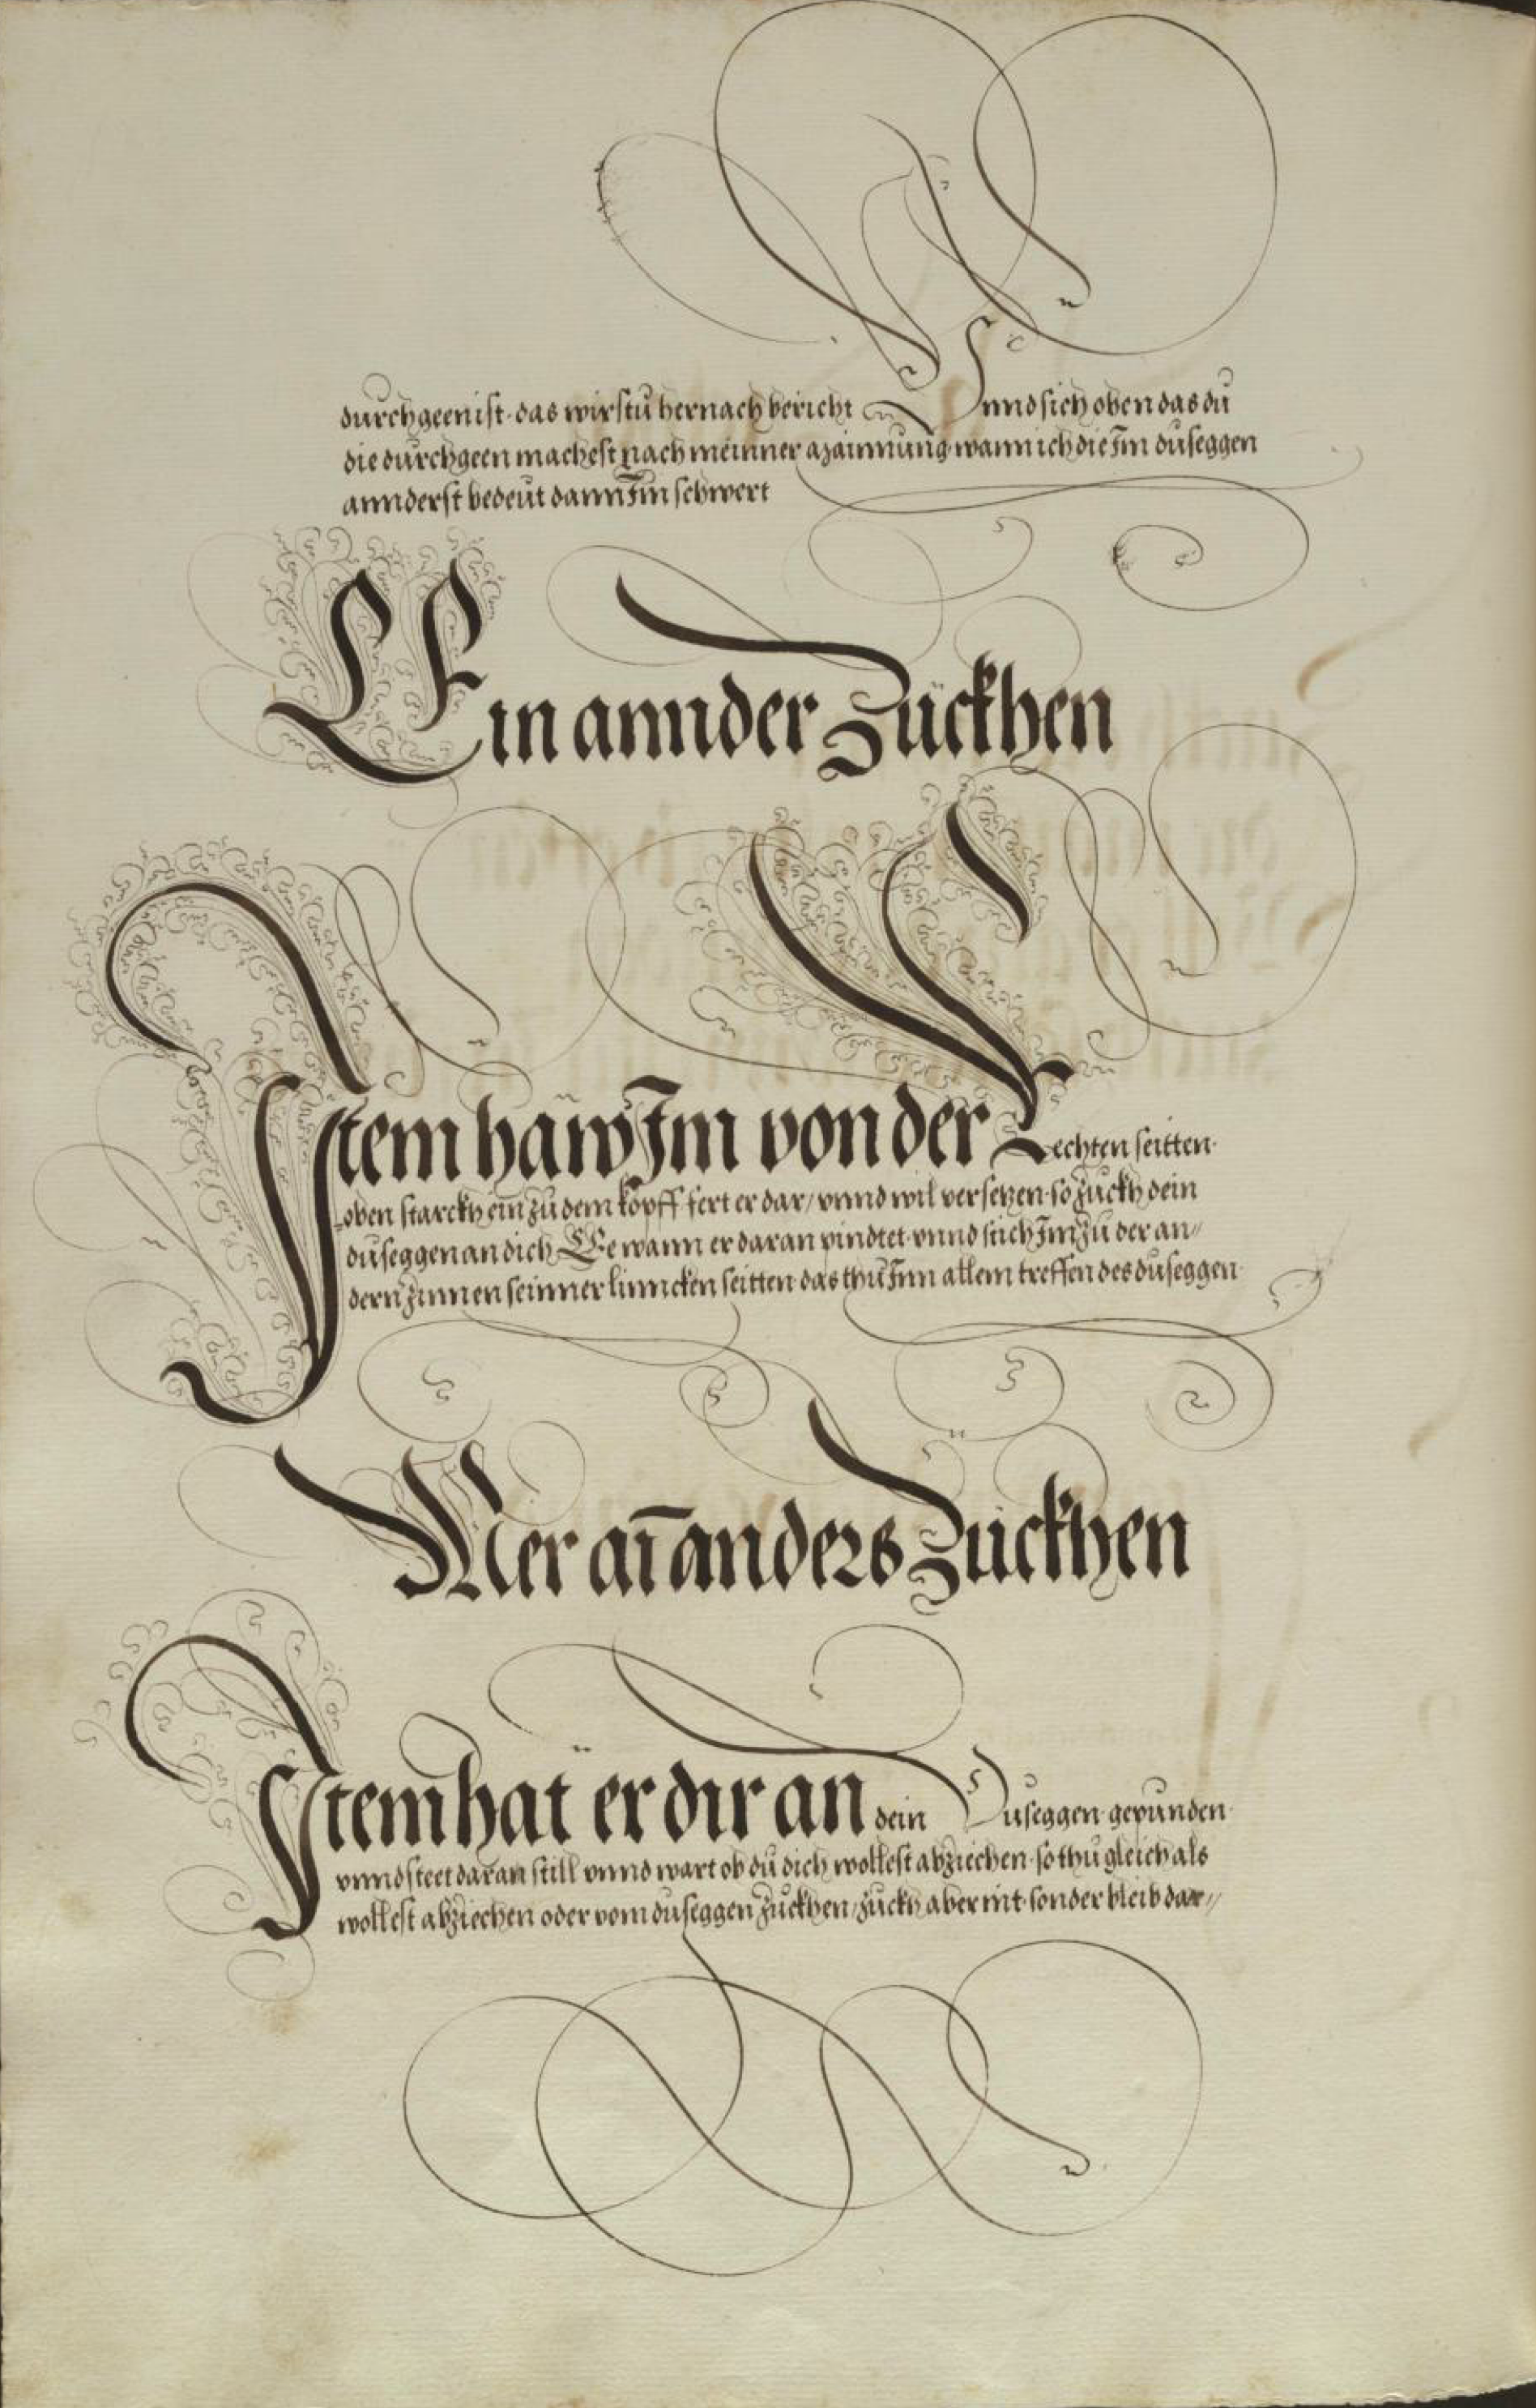 durchgeen ist· das wirstu hernach bericht Unnd sich oben das du
die durchgeen machest nach meinner azainnung wann ich die Im duseggen
annderst bedeut dann Im schwert
Ein annder Zückhen
Item haw Im von der Rechten seitten·
oben starckh ein zu dem kopff fert er dar/ vnnd wil versetzen· so zuckh dein
duseggen an dich Ee wann er daran pindtet· vnnd stich Im zu der an〃
dern zinnen seinner linncken seitten· das thu Inn allem treffen des duseggen·
Mer aī anders Zuckhen
Item hat er dir an dein Duseggen gepunden·
vnnd steet daran still vnnd wart ob du dich wollest abziechen· so thu gleich als
wollest abziechen oder vom duseggen zuckhen/ zuckh aber nit· sonder bleib dar〃